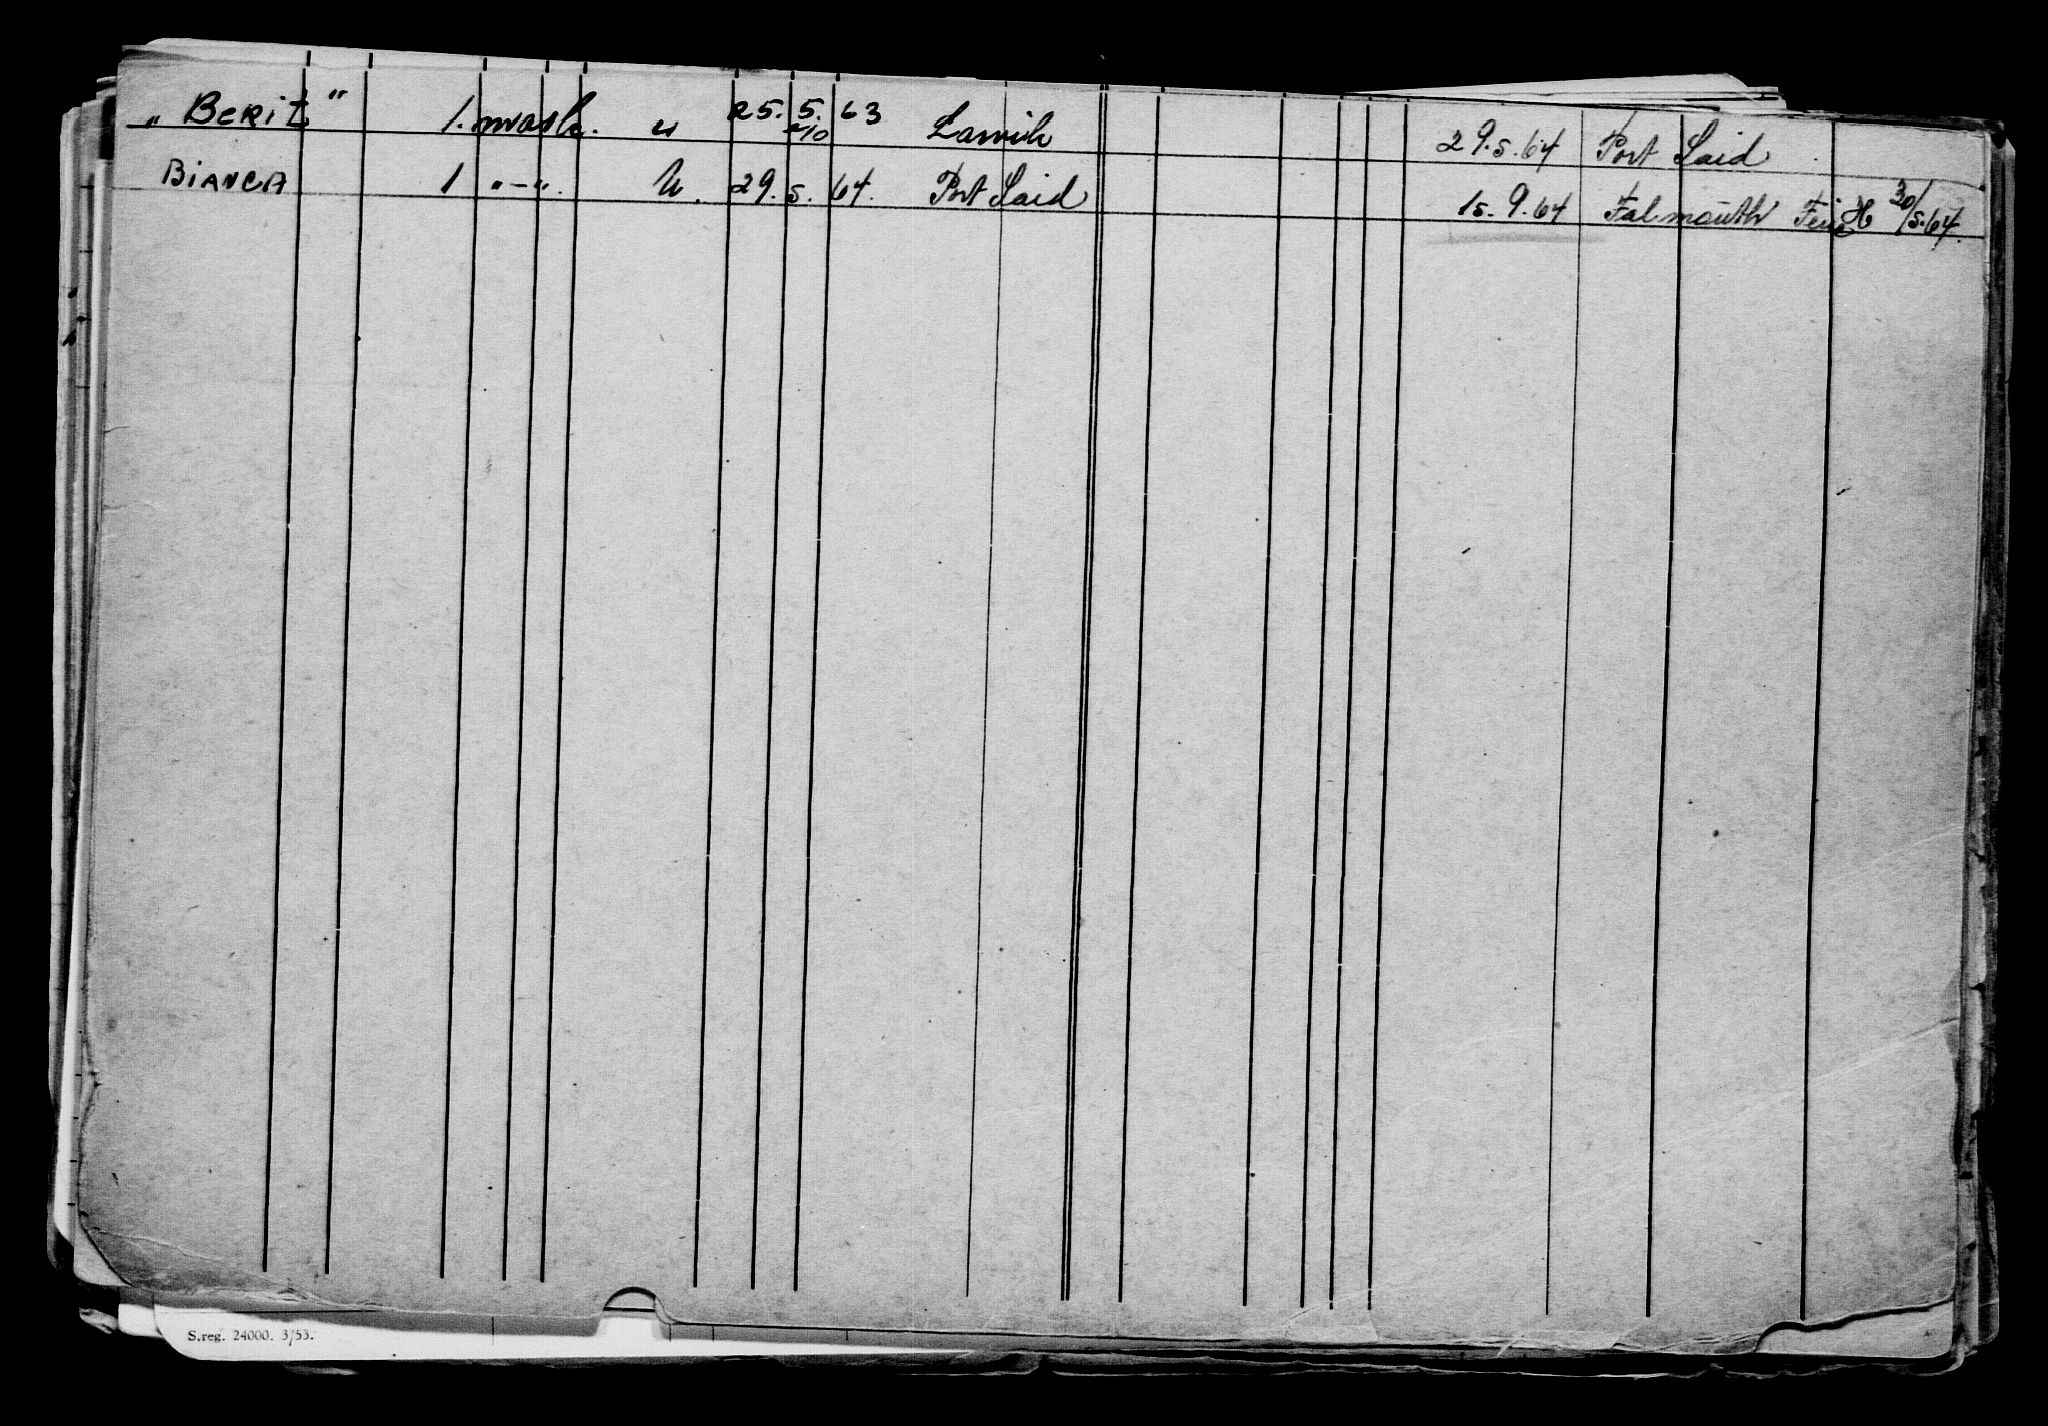 „ BERIT " 1. mask. u 25. 5. 63 Larvik 29.5.64 Port Said
BIANCA 1 "-". U. 29. 5. 64. Port Said 15.9.64 Falmouth Ferie 30/5.64.
S.reg. 24000. 3/53.